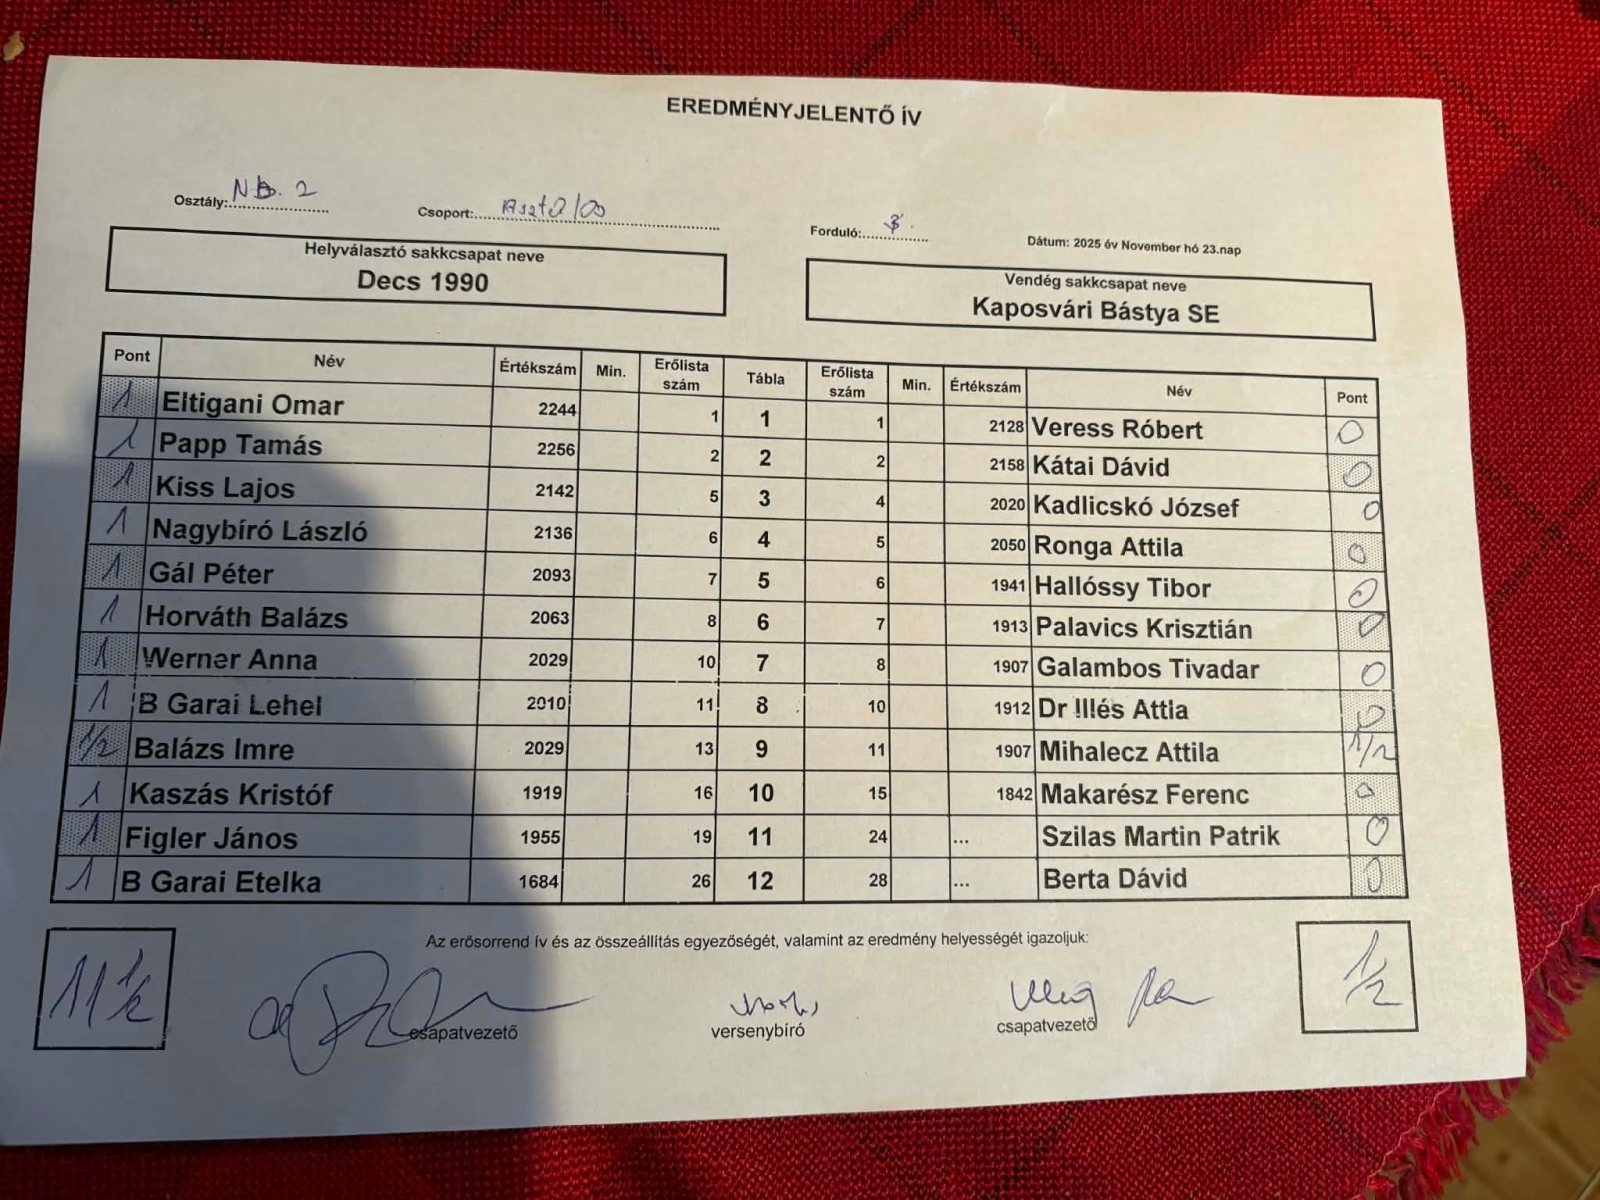 EREDMÉNYJELENTŐ ÍV
Osztály: NB. 2
Csoport:
Forduló: 3.
Dátum: 2025 év November hó 23.nap
Helyválasztó sakkcsapat neve
Decs 1990
Vendég sakkcsapat neve
Kaposvári Bástya SE
Pont Név Értékszám Min. Erőlista szám Tábla Erőlista szám Min. Értékszám Név Pont
1 Eltigani Omar 2244 1 1 1 2128 Veress Róbert 0
1 Papp Tamás 2256 2 2 2 2158 Kátai Dávid 0
1 Kiss Lajos 2142 5 3 4 2020 Kadlicskó József 0
1 Nagybíró László 2136 6 4 5 2050 Ronga Attila 0
1 Gál Péter 2093 7 5 6 1941 Hallóssy Tibor 0
1 Horváth Balázs 2063 8 6 7 1913 Palavics Krisztián 0
1 Werner Anna 2029 10 7 8 1907 Galambos Tivadar 0
1 B Garai Lehel 2010 11 8 10 1912 Dr Illés Attla 0
1/2 Balázs Imre 2029 13 9 11 1907 Mihalecz Attila 1/2
1 Kaszás Kristóf 1919 16 10 15 1842 Makarész Ferenc 0
1 Figler János 1955 19 11 24 ... Szilas Martin Patrik 0
1 B Garai Etelka 1684 26 12 28 ... Berta Dávid 0
Az erősorrend ív és az összeállítás egyezőségét, valamint az eredmény helyességét igazoljuk:
11 1/2
1/2
csapatvezető
versenybíró
csapatvezető